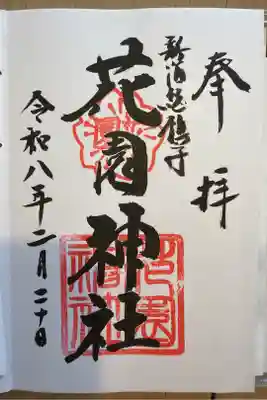 奉拝
新宿総鎮守
花園神社
令和八年二月二十日
花園神社